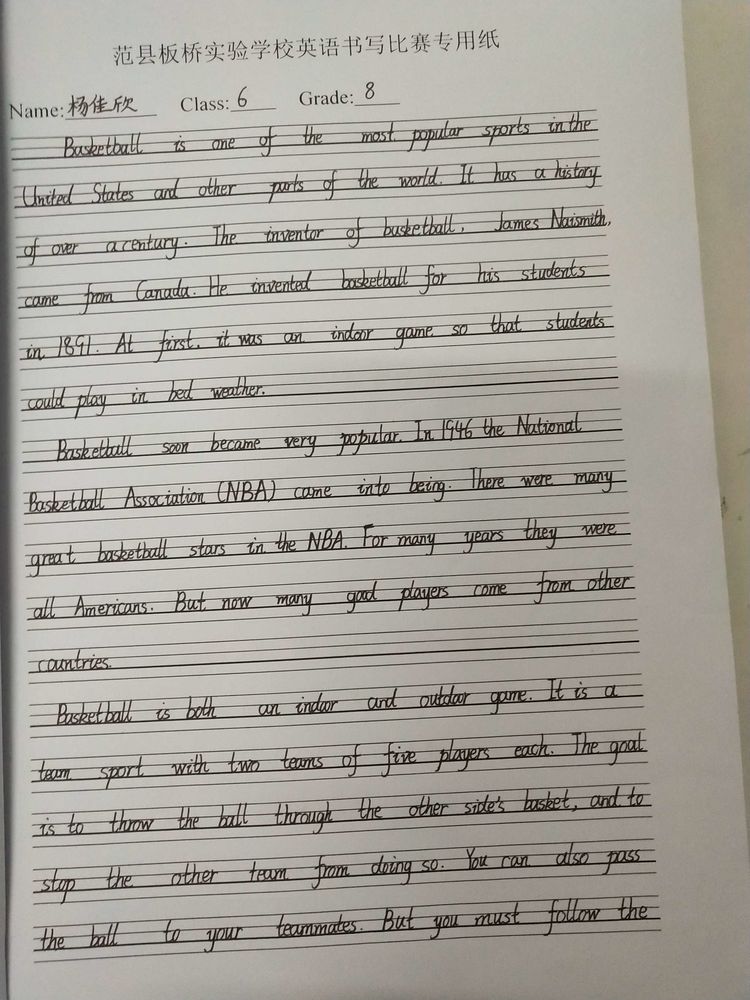 范县板桥实验学校英语书写比赛专用纸
Name: 杨佳欣 Class: 6 Grade: 8
Basketball is one of the most popular sports in the
United States and other parts of the world. It has a history
of over a century. The inventor of basketball, James Naismith,
came from Canada. He invented basketball for his students
in 1891. At first, it was an indoor game so that students
could play in bed weather.
Basketball soon became very popular. In 1946 the National
Basketball Association (NBA) came into being. There were many
great basketball stars in the NBA. For many years they were
all Americans. But now many good players come from other
countries.
Basketball is both an indoor and outdoor game. It is a
team sport with two teams of five players each. The goal
is to throw the ball through the other side's basket, and to
stop the other team from doing so. You can also pass
the ball to your teammates. But you must follow the